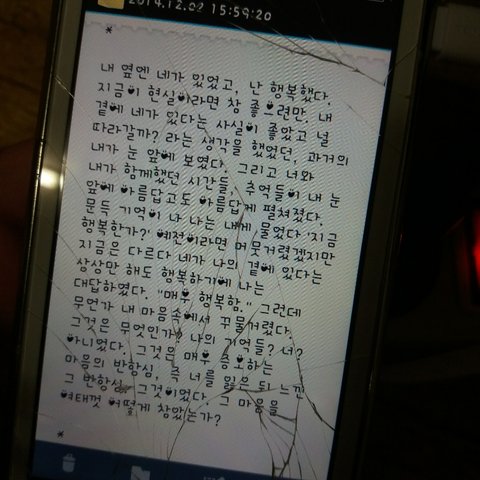 2014.12.02 15:59:20
*
내 옆엔 네가 있었고, 난 행복했다.
지금이 현실이라면 참 좋으련만, 내
곁에 네가 있다는 사실이 좋았고 널
따라갈까? 라는 생각을 했었던, 과거의
내가 눈 앞에 보였다. 그리고 너와
내가 함께했던 시간들, 추억들이 내 눈
앞에 아름답고도 아름답게 펼쳐졌다.
문득 기억이 나 나는 내게 물었다 '지금
행복한가?' 예전이라면 머뭇거렸겠지만
지금은 다르다 네가 나의 곁에 있다는
상상만 해도 행복하기에 나는
대답하였다. "매우 행복함." 그런데
무언가 내 마음속에서 꾸물거렸다.
그것은 무엇인가? 나의 기억들? 너?
아니었다. 그것은 매우 증오하는
마음의 반항심, 즉 너를 잃은 뒤 느낀
그 반항심, 그것이었다. 그 마음을
여태껏 어떻게 참았는가?
*